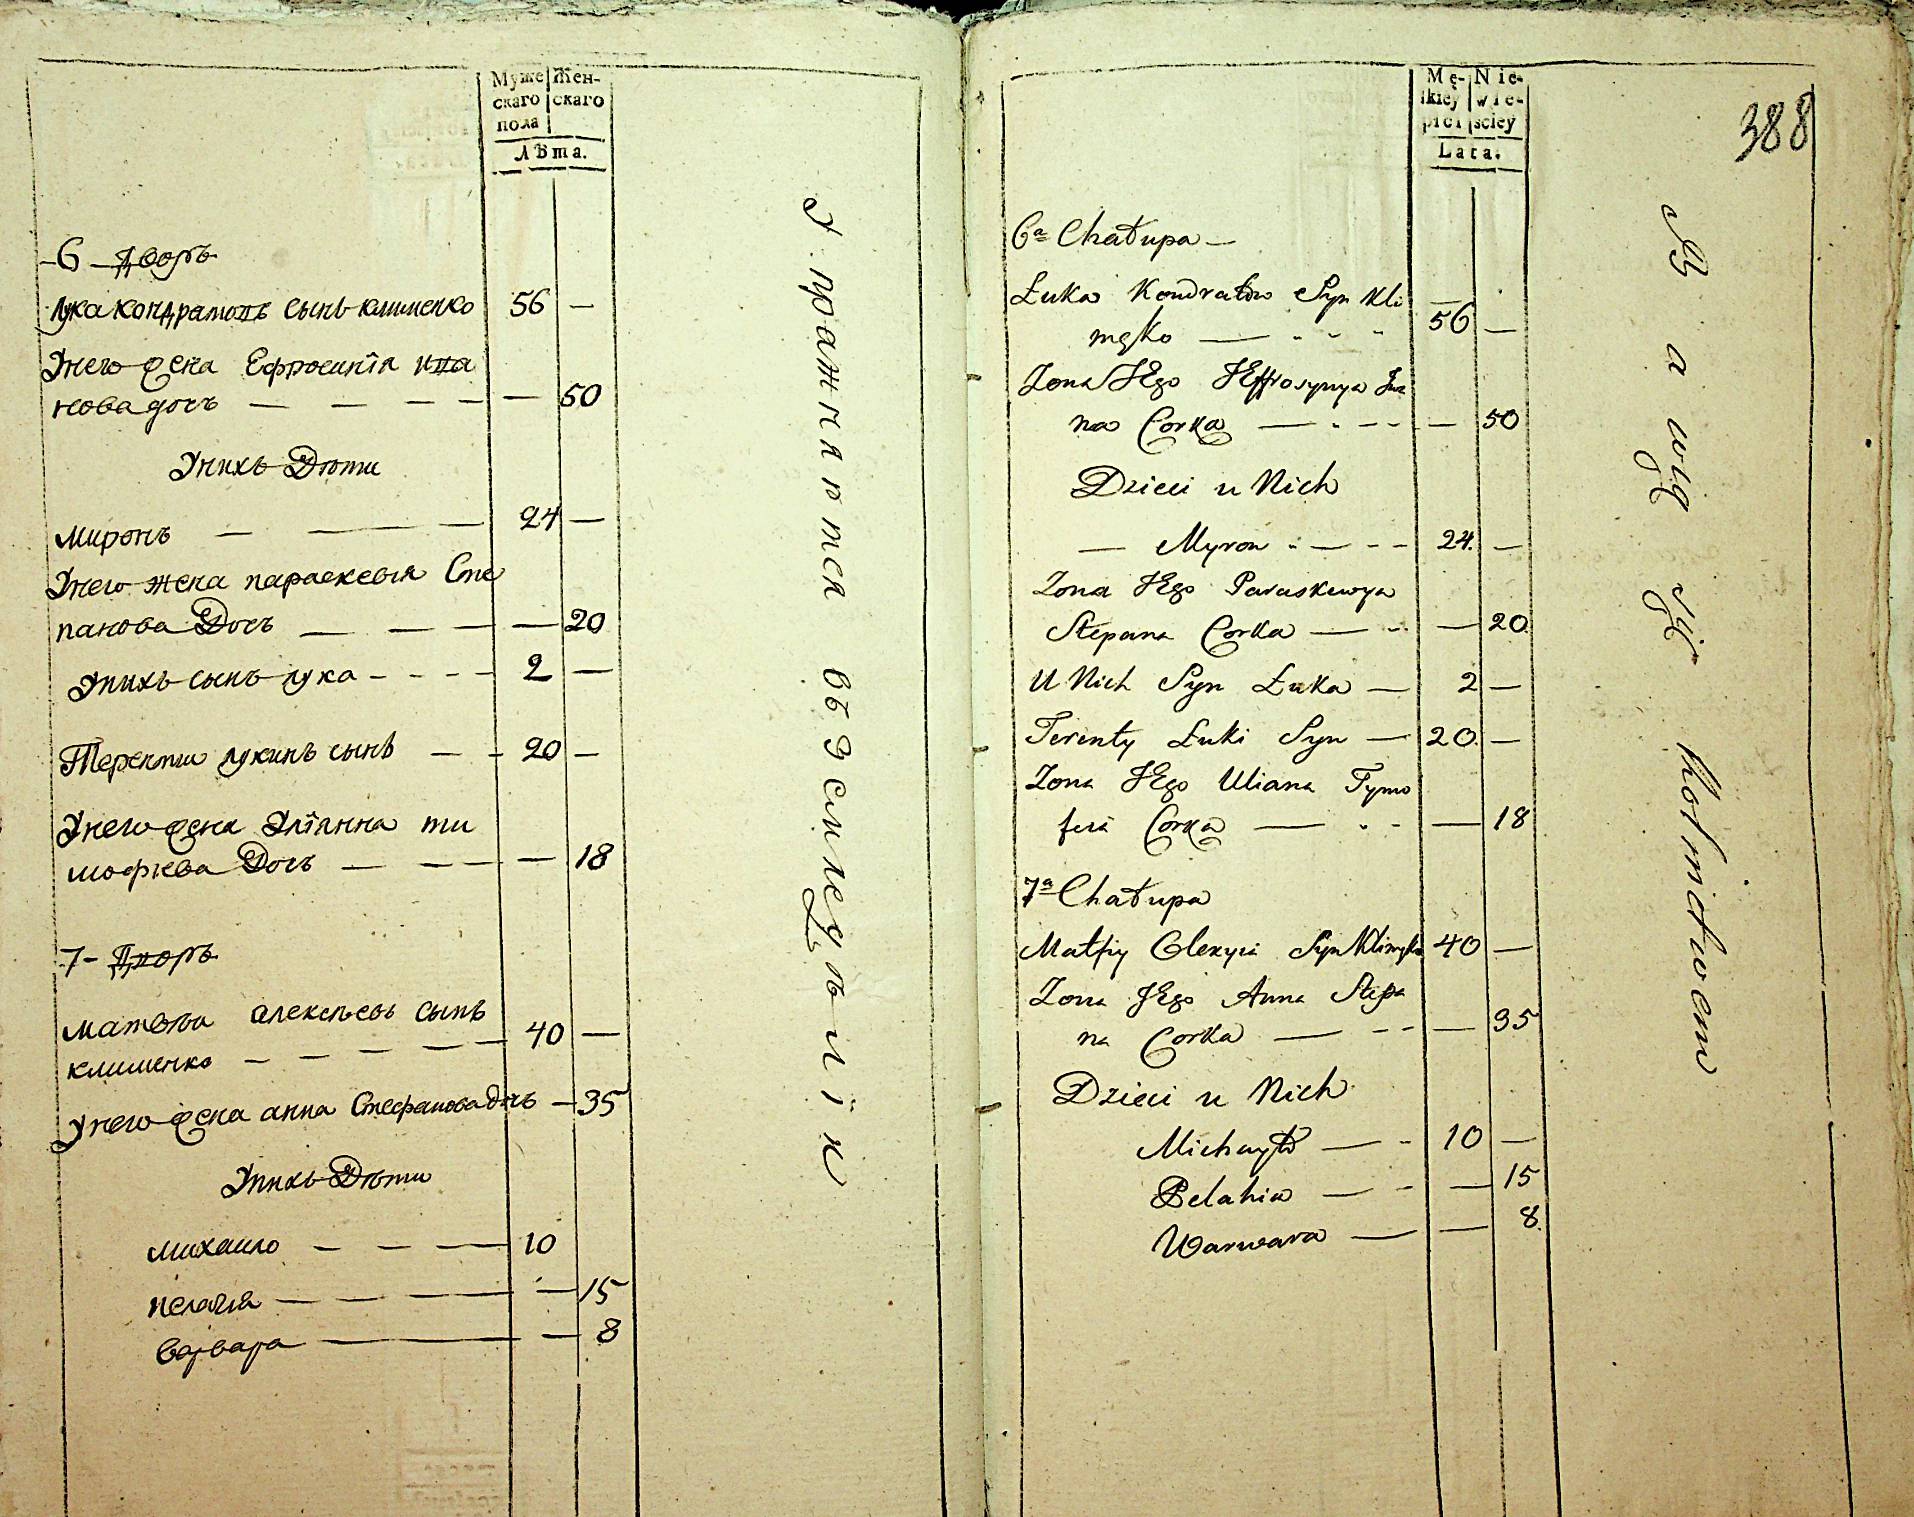 Муже Жен-
скаго скаго
пола
Лѣта.
6 Дворъ
Лука кондратовъ сынъ клименко 56 —
Унего жена Ефросинїя ива
нова дочь — — — — — 50
Унихъ Дѣти
миронъ — — — 24 —
Унего жена параскевья Сте
панова Дочь — — — — 20
Унихъ сынъ лука - - - - 2 —
Терентии лукинъ сынъ — - 20 —
Унего жена Улїянна ти
мофѣева Дочь — — — — 18
7 - Дворъ
матвѣи алексѣевъ сынъ
клименко — — — — — 40 —
унего жена анна Стефанова дочь — 35
Унихъ Дѣти
михаило — — — — 10
пелагия — — — — — 15
варвара — — 8
Упражняются въ землѣдѣлїи
388
Mę- Nie-
skiey wie-
płci ściey
Lata.
6ª Chałupa —
Łuka Kondratow Syn Kli
męko — - - - 56 —
Zona JEgo JEffrosynya Jwa
na Corka — - - - — 50
Dzieci u Nich
— Myron - — - - 24. —
Zona JEgo Paraskewya
Stepana Corka — - - — 20
U Nich Syn Łuka — 2 —
Terenty Łuki Syn — 20 —
Zona JEgo Uliana Tymo
feia Corka — - - — 18
7ª Chałupa
Matfiy Olexyia Syn Klimęko 40 —
Zona JEgo Anna Stepa
na Corka — - - — 35
Dzieci u Nich
Michayło — - 10 —
Pelahia — - — 15
Warwara — — 8.
Bawią się Rolnictwem